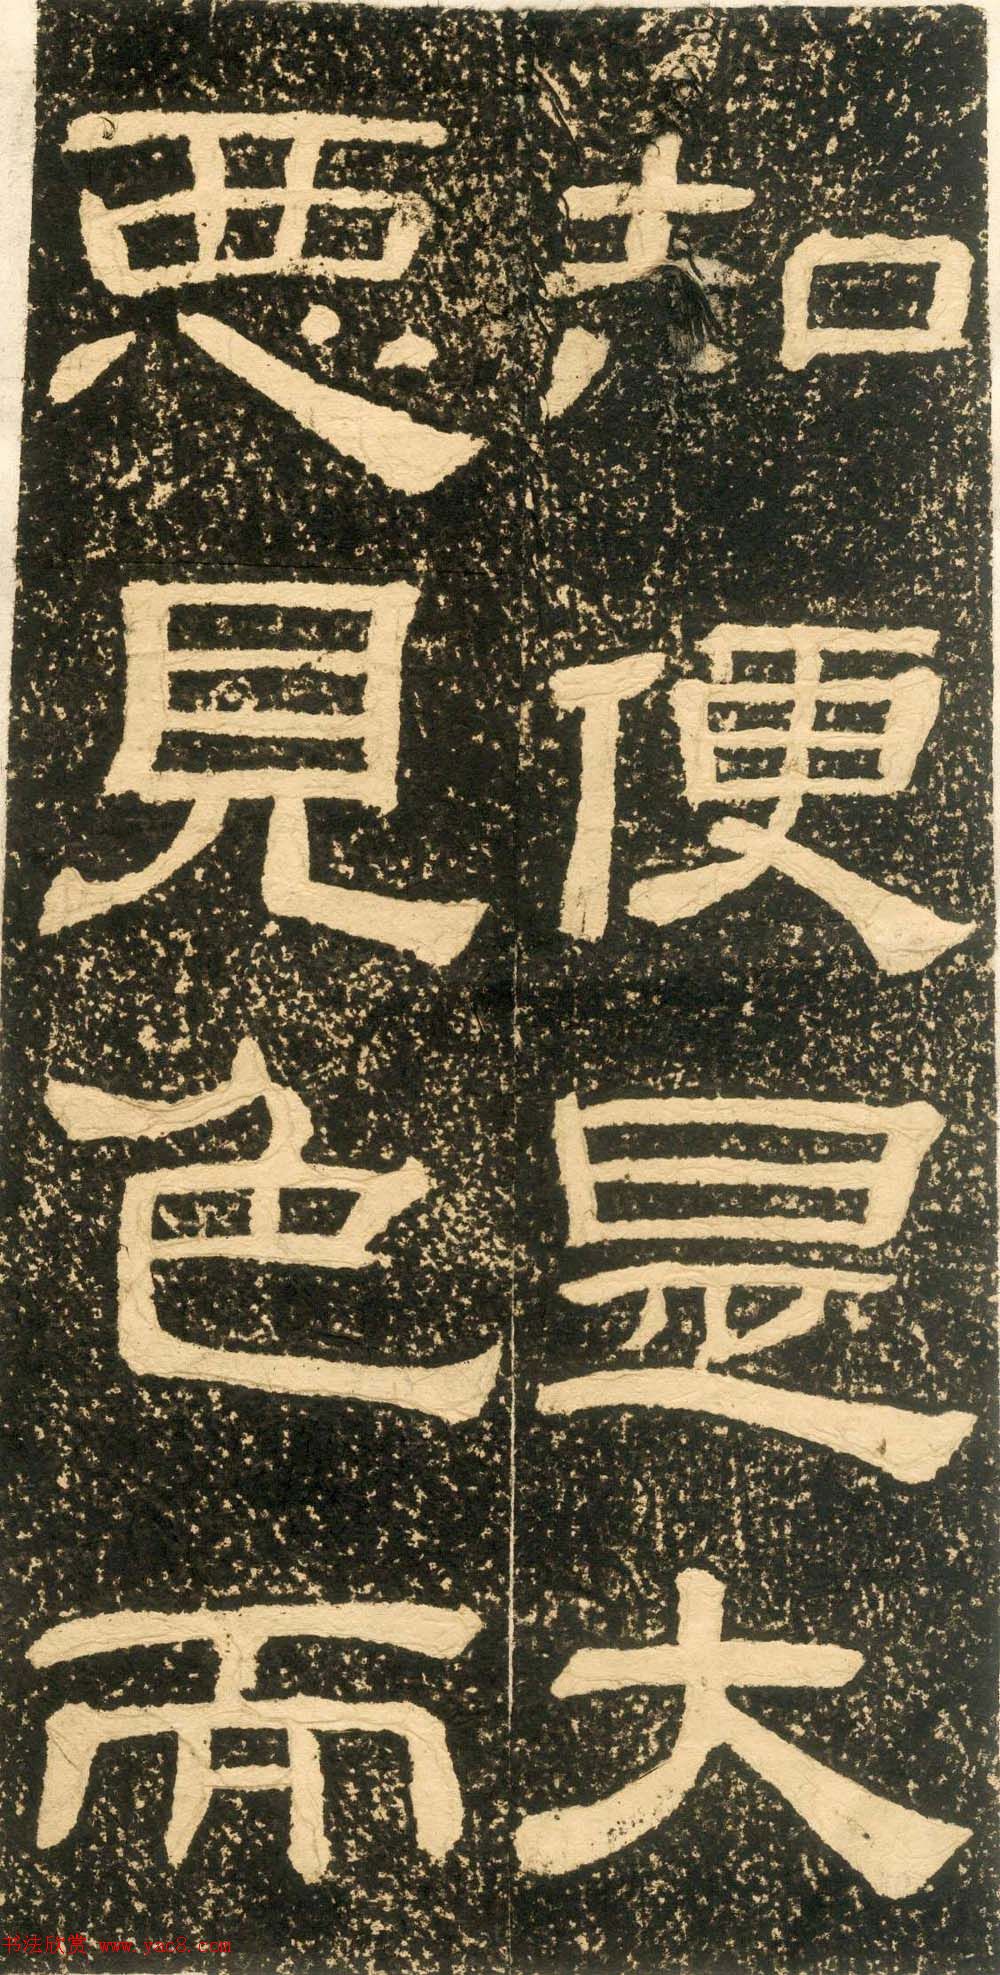 知便是大
惡見色而
书法欣赏 www.yac8.com